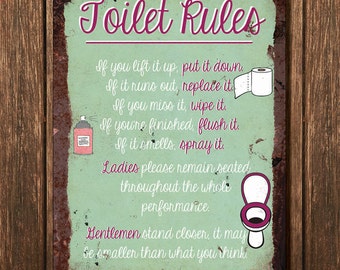 Toilet Rules
If you lift it up, put it down.
If it runs out, replace it.
If you miss it, wipe it.
If you're finished, flush it.
If it smells, spray it.
Ladies please remain seated
throughout the whole
performance.
Gentlemen stand closer, it may
be smaller than what you think.